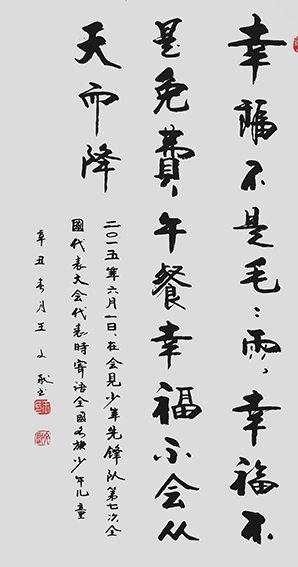 幸福不是毛〻雨,幸福不
是免費午餐幸福不会从
天而降
二〇一五年六月一日,在会見少年先鋒队第七次全
國代表大会代表時寄語全國各族少年儿童
辛丑春月王文敬书